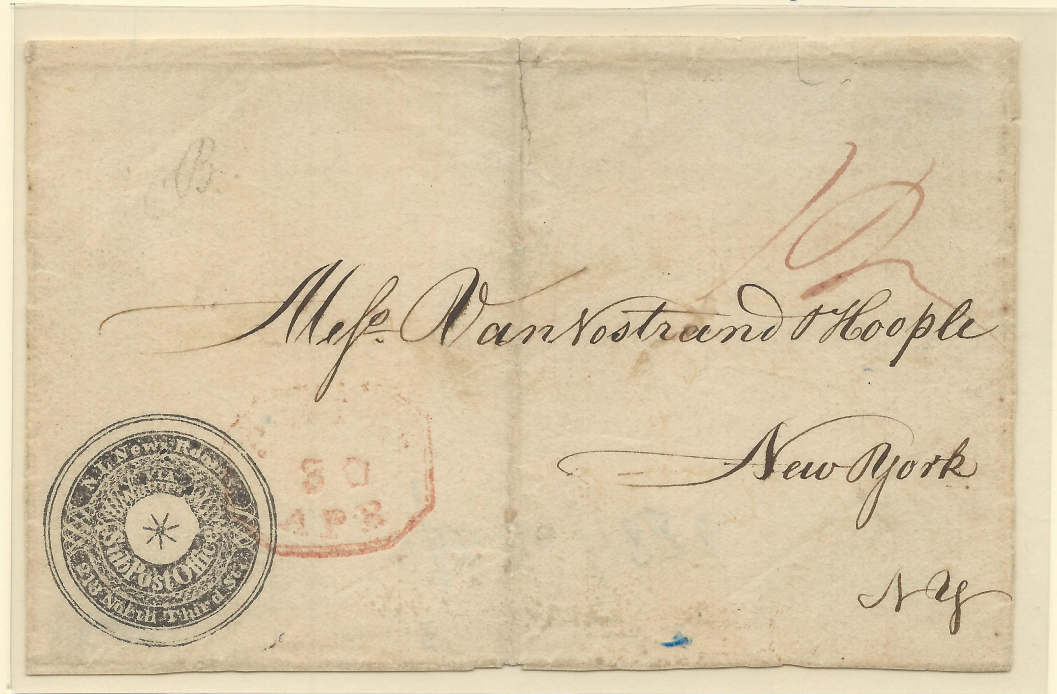 B
10
Messrs. Van Nostrand & Hoople
New York
N Y
30
APR
N.L. News Rooms
Sub Post Office
North Third St.